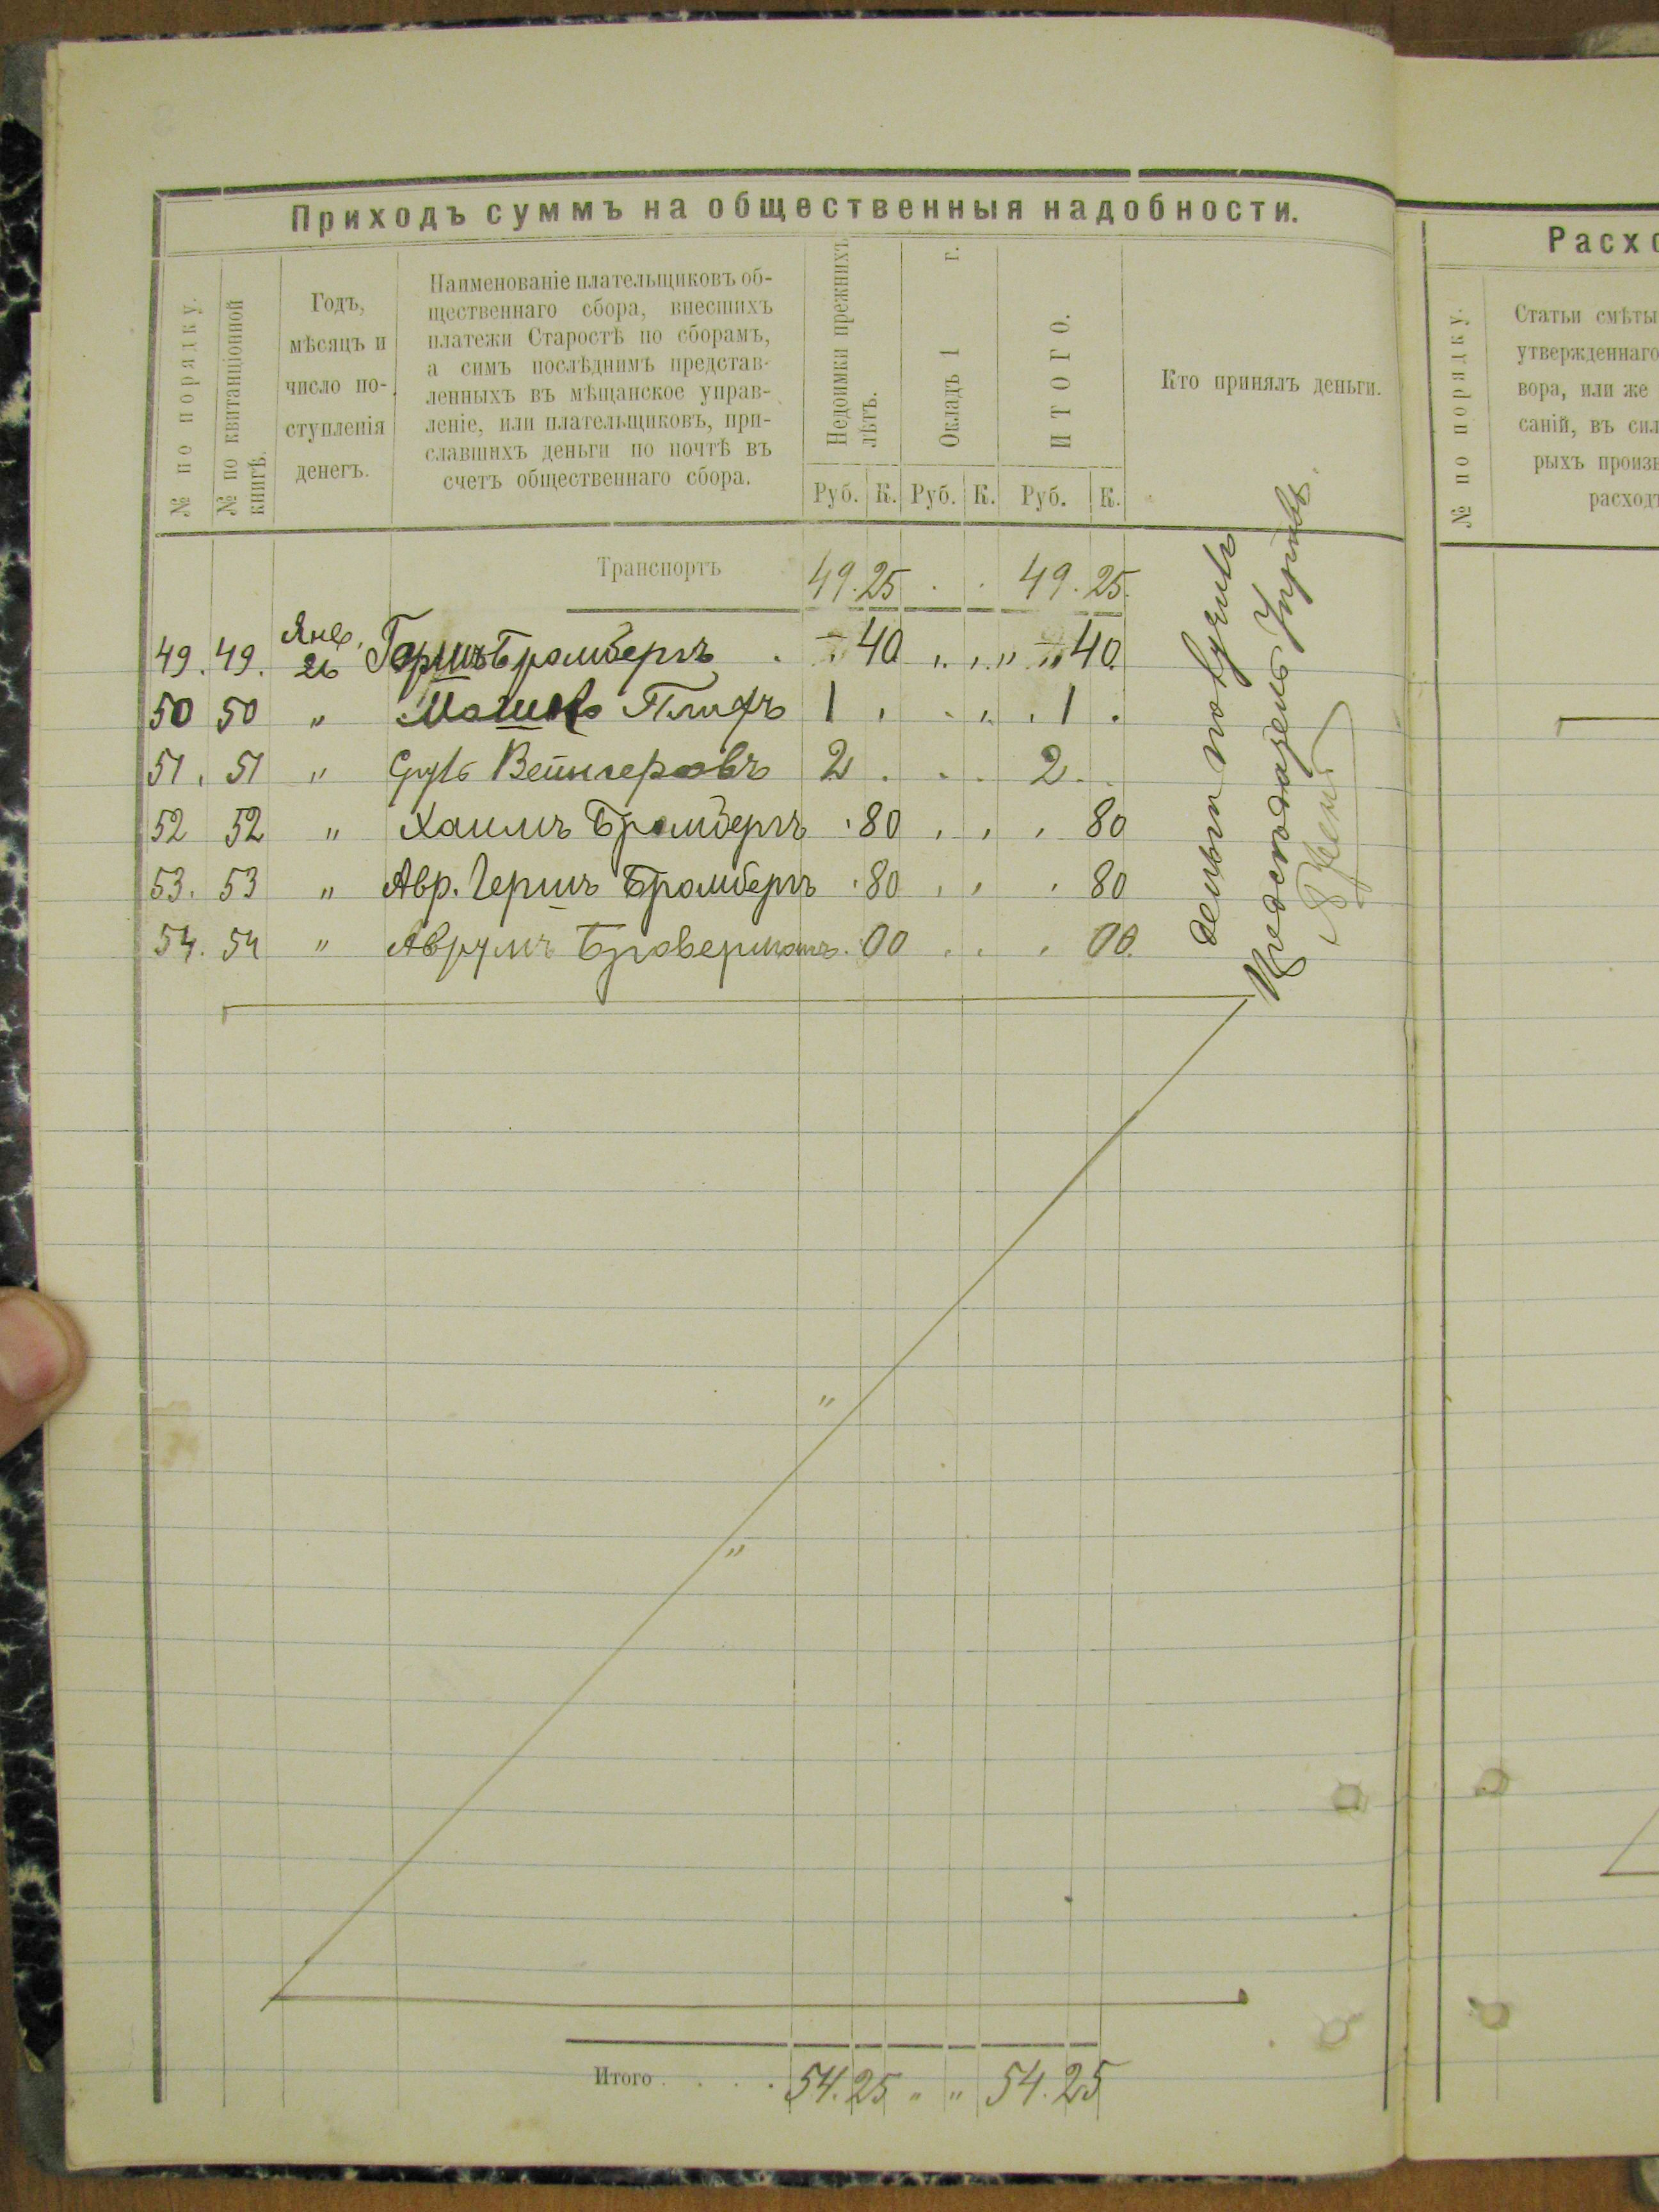 Приходъ суммъ на общественныя надобности.
№ по порядку.
№ по квитанціонной
книгѣ.
Годъ,
мѣсяцъ и
число по-
ступленія
денегъ.
Наименованіе плательщиковъ об-
щественнаго сбора, внесшихъ
платежи Старостѣ по сборамъ,
а симъ послѣднимъ представ-
ленныхъ въ мѣщанское управ-
леніе, или плательщиковъ, при-
славшихъ деньги по почтѣ въ
счетъ общественнаго сбора.
Недоимки прежнихъ
лѣтъ.
Окладъ 1 г.
ИТОГО.
Кто принялъ деньги.
Руб. К. Руб. К. Руб. К.
Транспортъ 49. 25 49. 25.
49. 49. Янв. 26 Гершъ Бромбергъ 40 „ „ „ „ 40
50 50 „ Мошко 1 1
51. 51 „ Вейнгеровъ 2 2
52 52 „ Хаимъ Бромбергъ 80 80
53. 53 „ Авр. Гершъ Бромбергъ 80 80
54. 54 „ Аврумъ Броверманъ 00 00.
„
„
Деньги получилъ
Предсѣдатель Управы
Итого 54. 25 „ „ 54. 25
Расхо
№ по порядку.
Статьи смѣты
утвержденнаго
вора, или же
саній, въ сил
рыхъ произв
расходъ